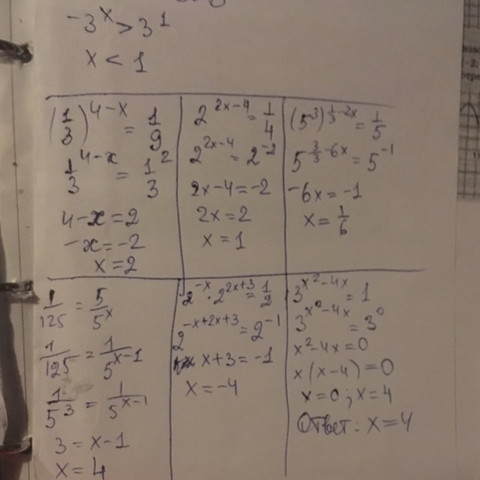 -3^x > 3^1
x < 1
(1/3)^4-x = 1/9
1/3^4-x = 1/3^2
4-x=2
-x=-2
x=2
2^2x-4 = 1/4
2^2x-4 = 2^-2
2x-4=-2
2x=2
x=1
5^-6x = 5^-1
-6x=-1
x=1/6
1/125 = 5/5^x
1/125 = 1/5^x-1
1/5^3 = 1/5^x-1
3=x-1
x=4
2^-x · 2^2x+3 = 1/2
2^-x+2x+3 = 2^-1
x+3=-1
x=-4
3^x^2-4x = 1
3^x^2-4x = 3^0
x^2-4x=0
x(x-4)=0
x=0; x=4
Ответ: x=4